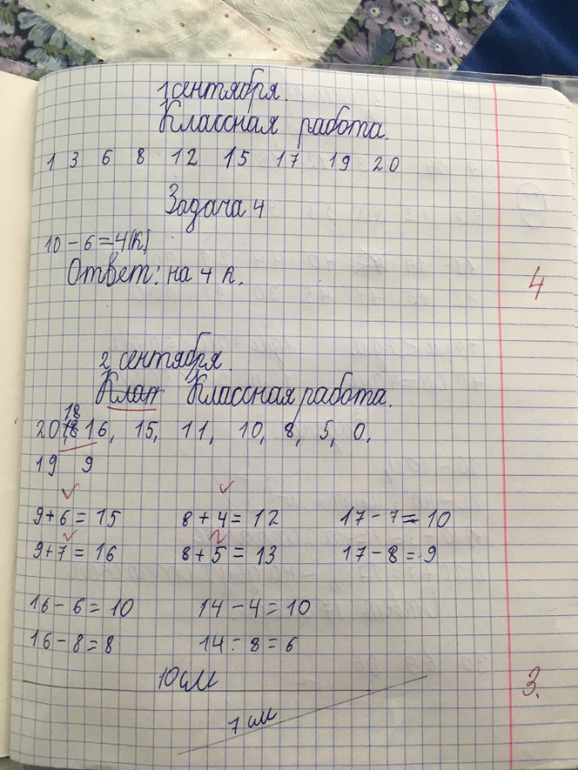 1 сентября.
Классная работа.
1 3 6 8 12 15 17 19 20
Задача 4
10 - 6 = 4 (к)
Ответ: на 4 к.
4
2 сентября.
Клан Классная работа.
18
20, 18 16, 15, 11, 10, 8, 5, 0.
19 9
9 + 6 = 15 8 + 4 = 12 17 - 7 = 10
9 + 7 = 16 8 + 5 = 13 17 - 8 = 9
16 - 6 = 10 14 - 4 = 10
16 - 8 = 8 14 - 8 = 6
10 см
3.
7 см